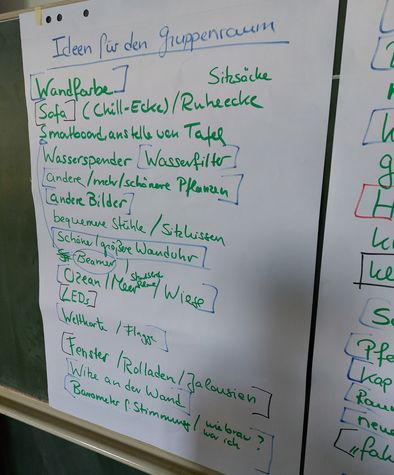 Ideen für den Gruppenraum
Sitzsäcke
Wandfarbe
Sofa (Chill-Ecke) / Ruheecke
Smartboard anstelle von Tafel
Wasserspender Wasserfilter
andere/mehr/schönere Pflanzen
andere Bilder
bequemere Stühle / Sitzkissen
Schöne/größere Wanduhr
Beamer
Ozean/Meer / Wiese
LEDs
Weltkarte / Flagge
Fenster / Rolladen / Jalousien
Witze an der Wand
Barometer f. Stimmung / wie brav war ich?